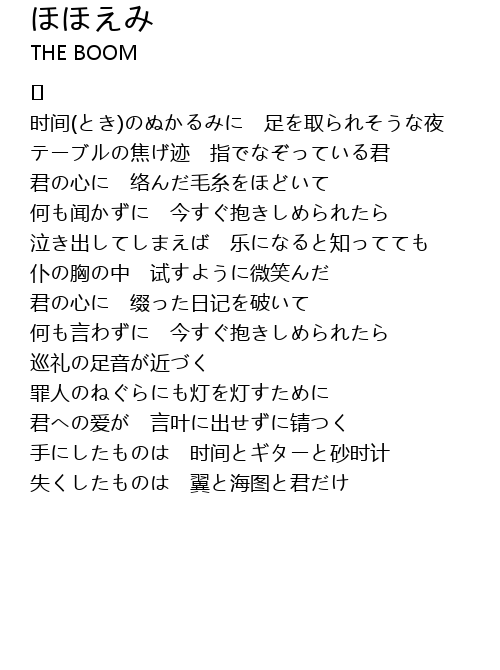 ほほえみ
THE BOOM
[]
时间(とき)のぬかるみに　足を取られそうな夜
テーブルの焦げ迹　指でなぞっている君
君の心に　络んだ毛糸をほどいて
何も闻かずに　今すぐ抱きしめられたら
泣き出してしまえば　乐になると知ってても
仆の胸の中　试すように微笑んだ
君の心に　缀った日记を破いて
何も言わずに　今すぐ抱きしめられたら
巡礼の足音が近づく
罪人のねぐらにも灯を灯すために
君への爱が　言叶に出せずに锖つく
手にしたものは　时间とギターと砂时计
失くしたものは　翼と海图と君だけ